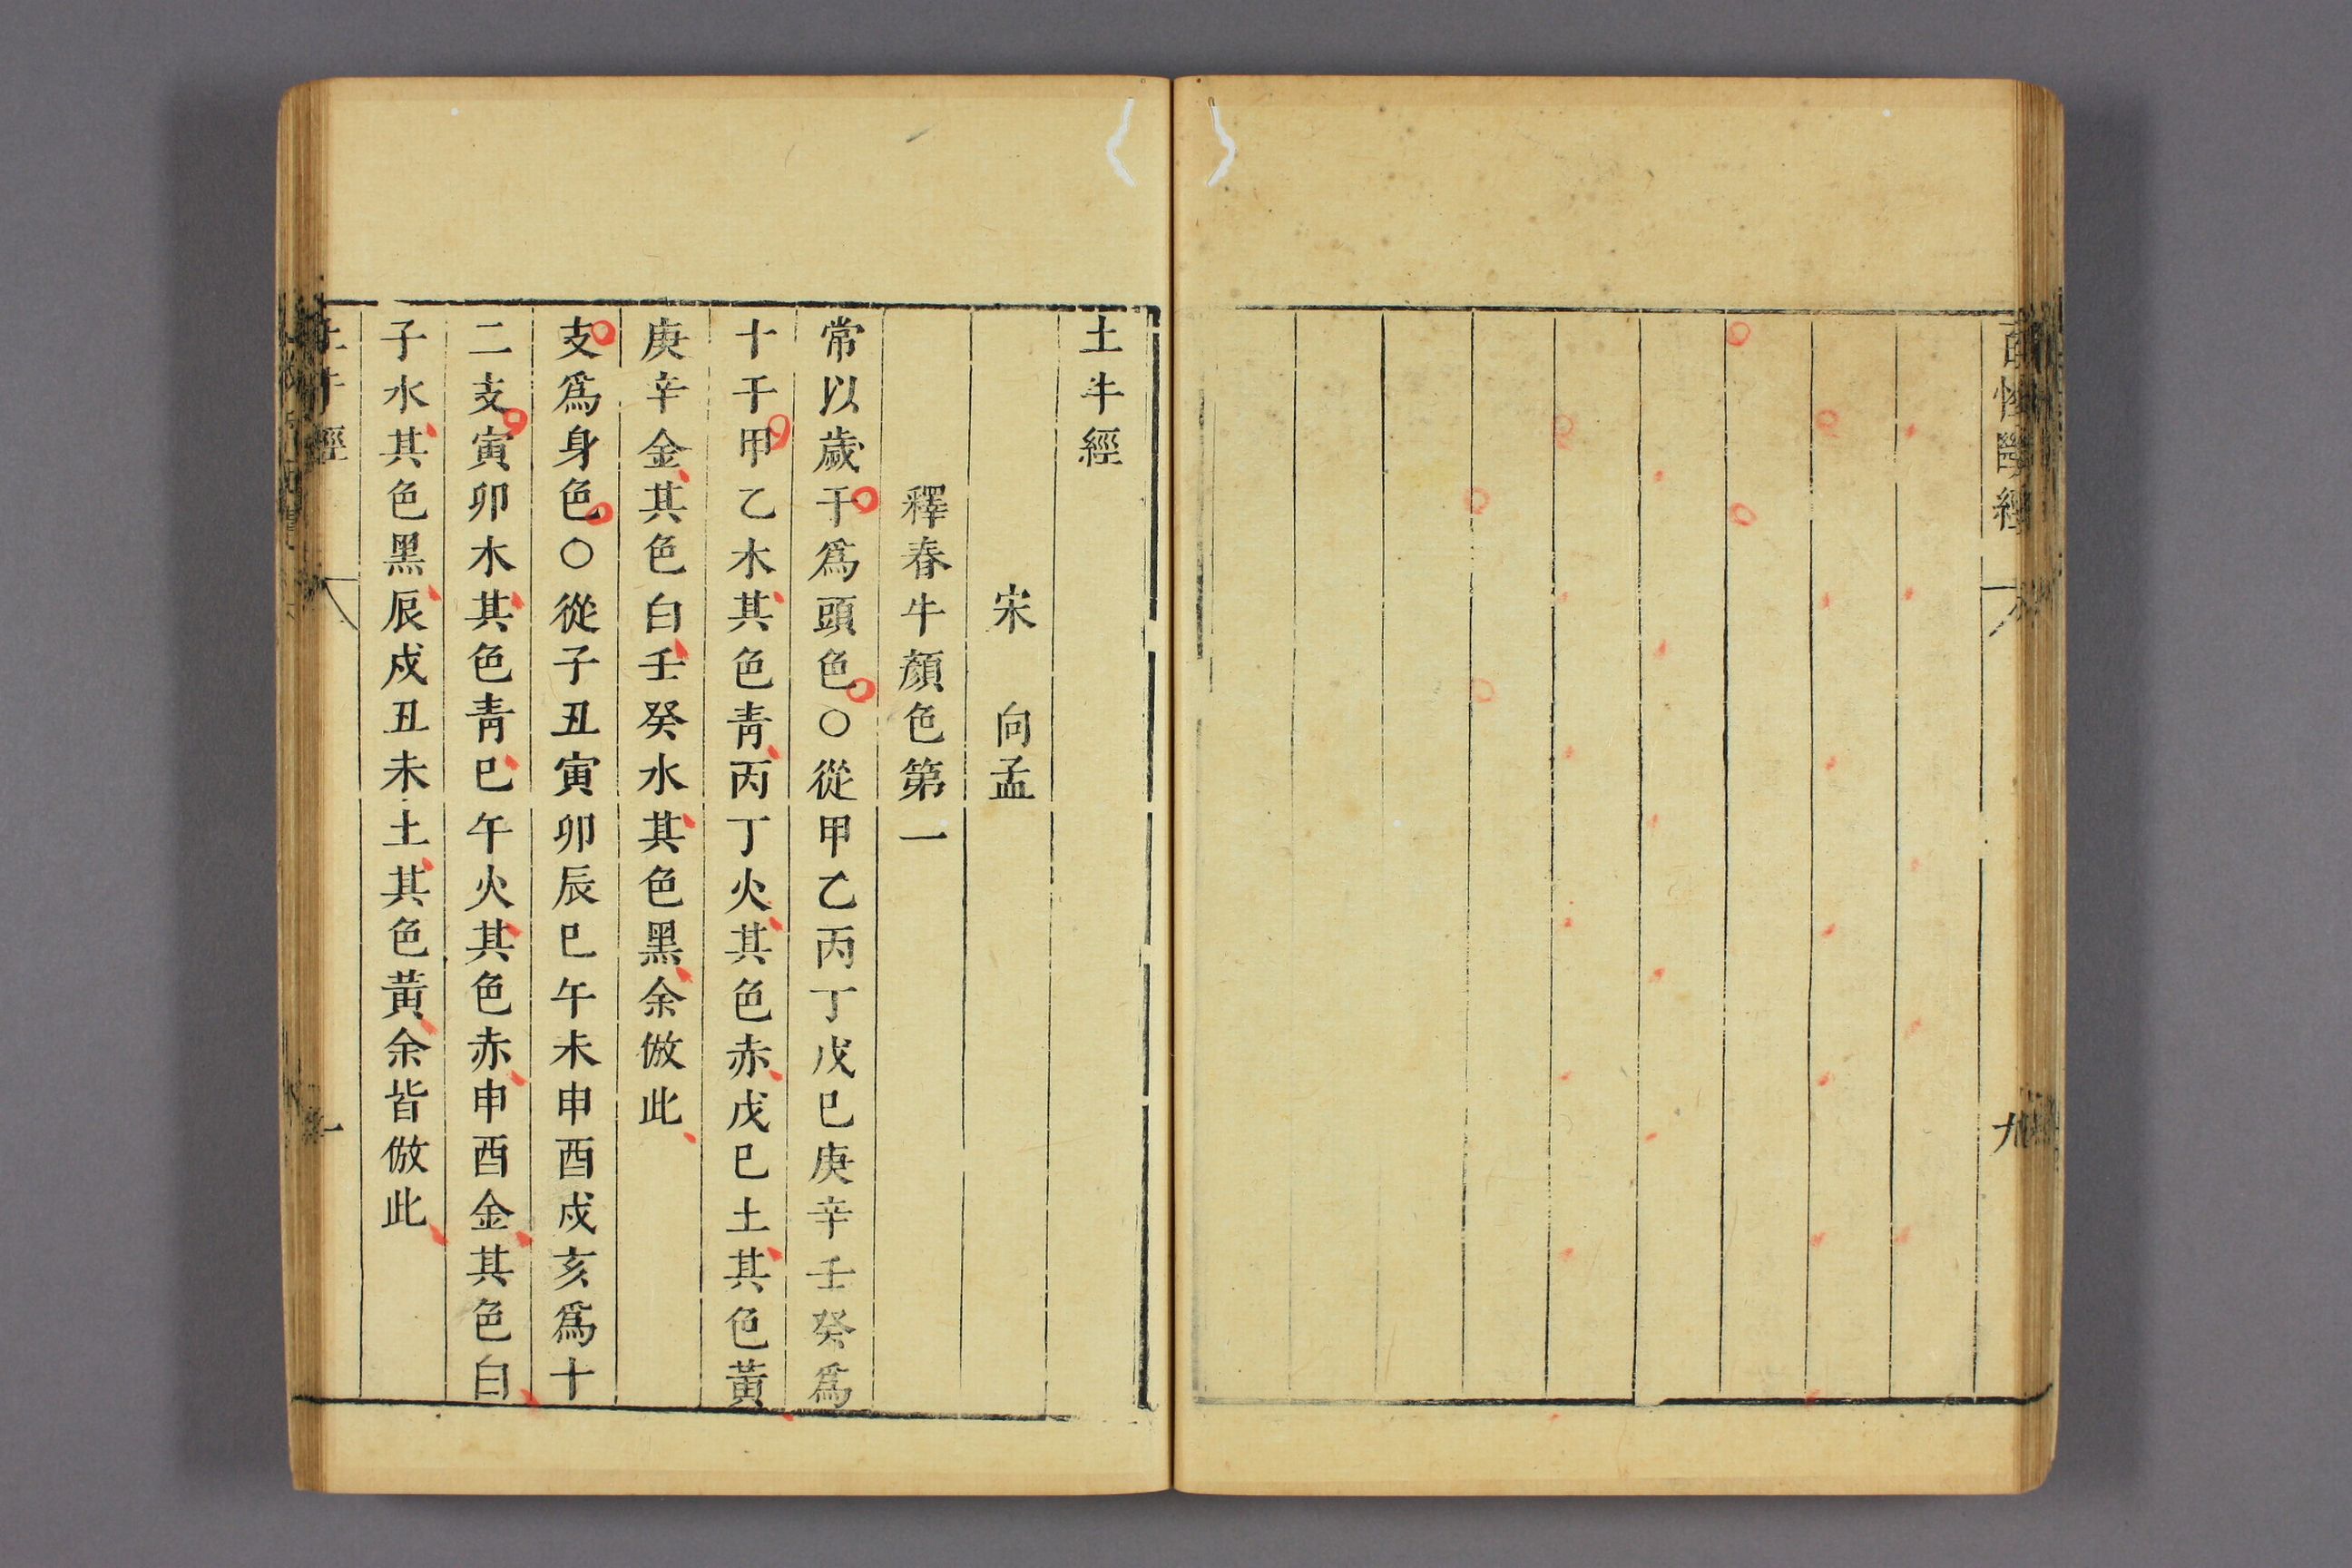 百怪斷經
九
土牛經
宋 向孟
釋春牛顏色第一
常以歲干爲頭色○從甲乙丙丁戊巳庚辛壬癸爲
十干甲乙木其色青丙丁火其色赤戊巳土其色黃
庚辛金其色白壬癸水其色黑余倣此
支爲身色○從子丑寅卯辰巳午未申酉戍亥爲十
二支寅卯木其色青巳午火其色赤申酉金其色白
子水其色黑辰戍丑未土其色黃余皆倣此
土牛經
一